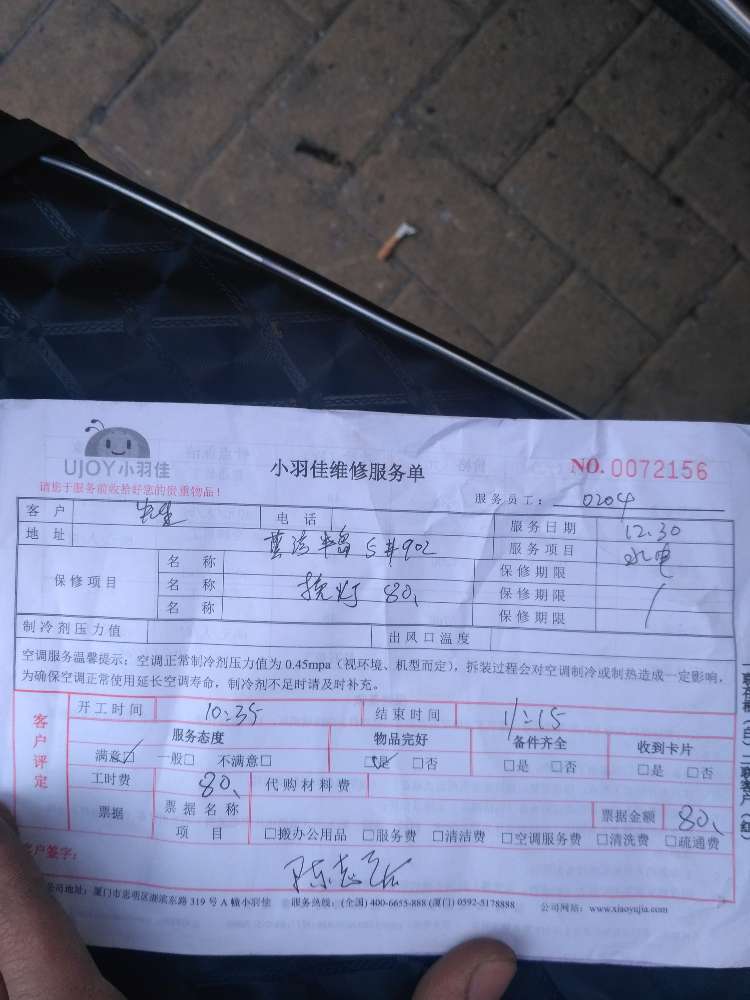 UJOY小羽佳
小羽佳维修服务单
NO. 0072156
请您于服务前收拾好您的贵重物品！
服务员工： 0204
客 户 电 话 服务日期 12.30
地 址 5#902 服务项目 水电
保修项目 名 称 保修期限
名 称 换灯 80 保修期限
名 称 保修期限
制冷剂压力值 出风口温度
空调服务温馨提示：空调正常制冷剂压力值为 0.45mpa（视环境、机型而定），拆装过程会对空调制冷或制热造成一定影响，
为确保空调正常使用延长空调寿命，制冷剂不足时请及时补充。
客户评定
开工时间 10:35 结束时间 11:15
服务态度 物品完好 备件齐全 收到卡片
满意☑ 一般□ 不满意□ ☑是 □否 □是 □否 □是 □否
工时费 80 代购材料费
票据 票据名称 票据金额 80
项 目 □搬办公用品 □服务费 □清洁费 □空调服务费 □清洗费 □疏通费
客户签字：
公司地址：厦门市思明区湖滨东路 319 号 A 幢小羽佳 服务热线：(全国) 400-6655-888 (厦门) 0592-5178888 公司网站：www.xiaoyujia.com